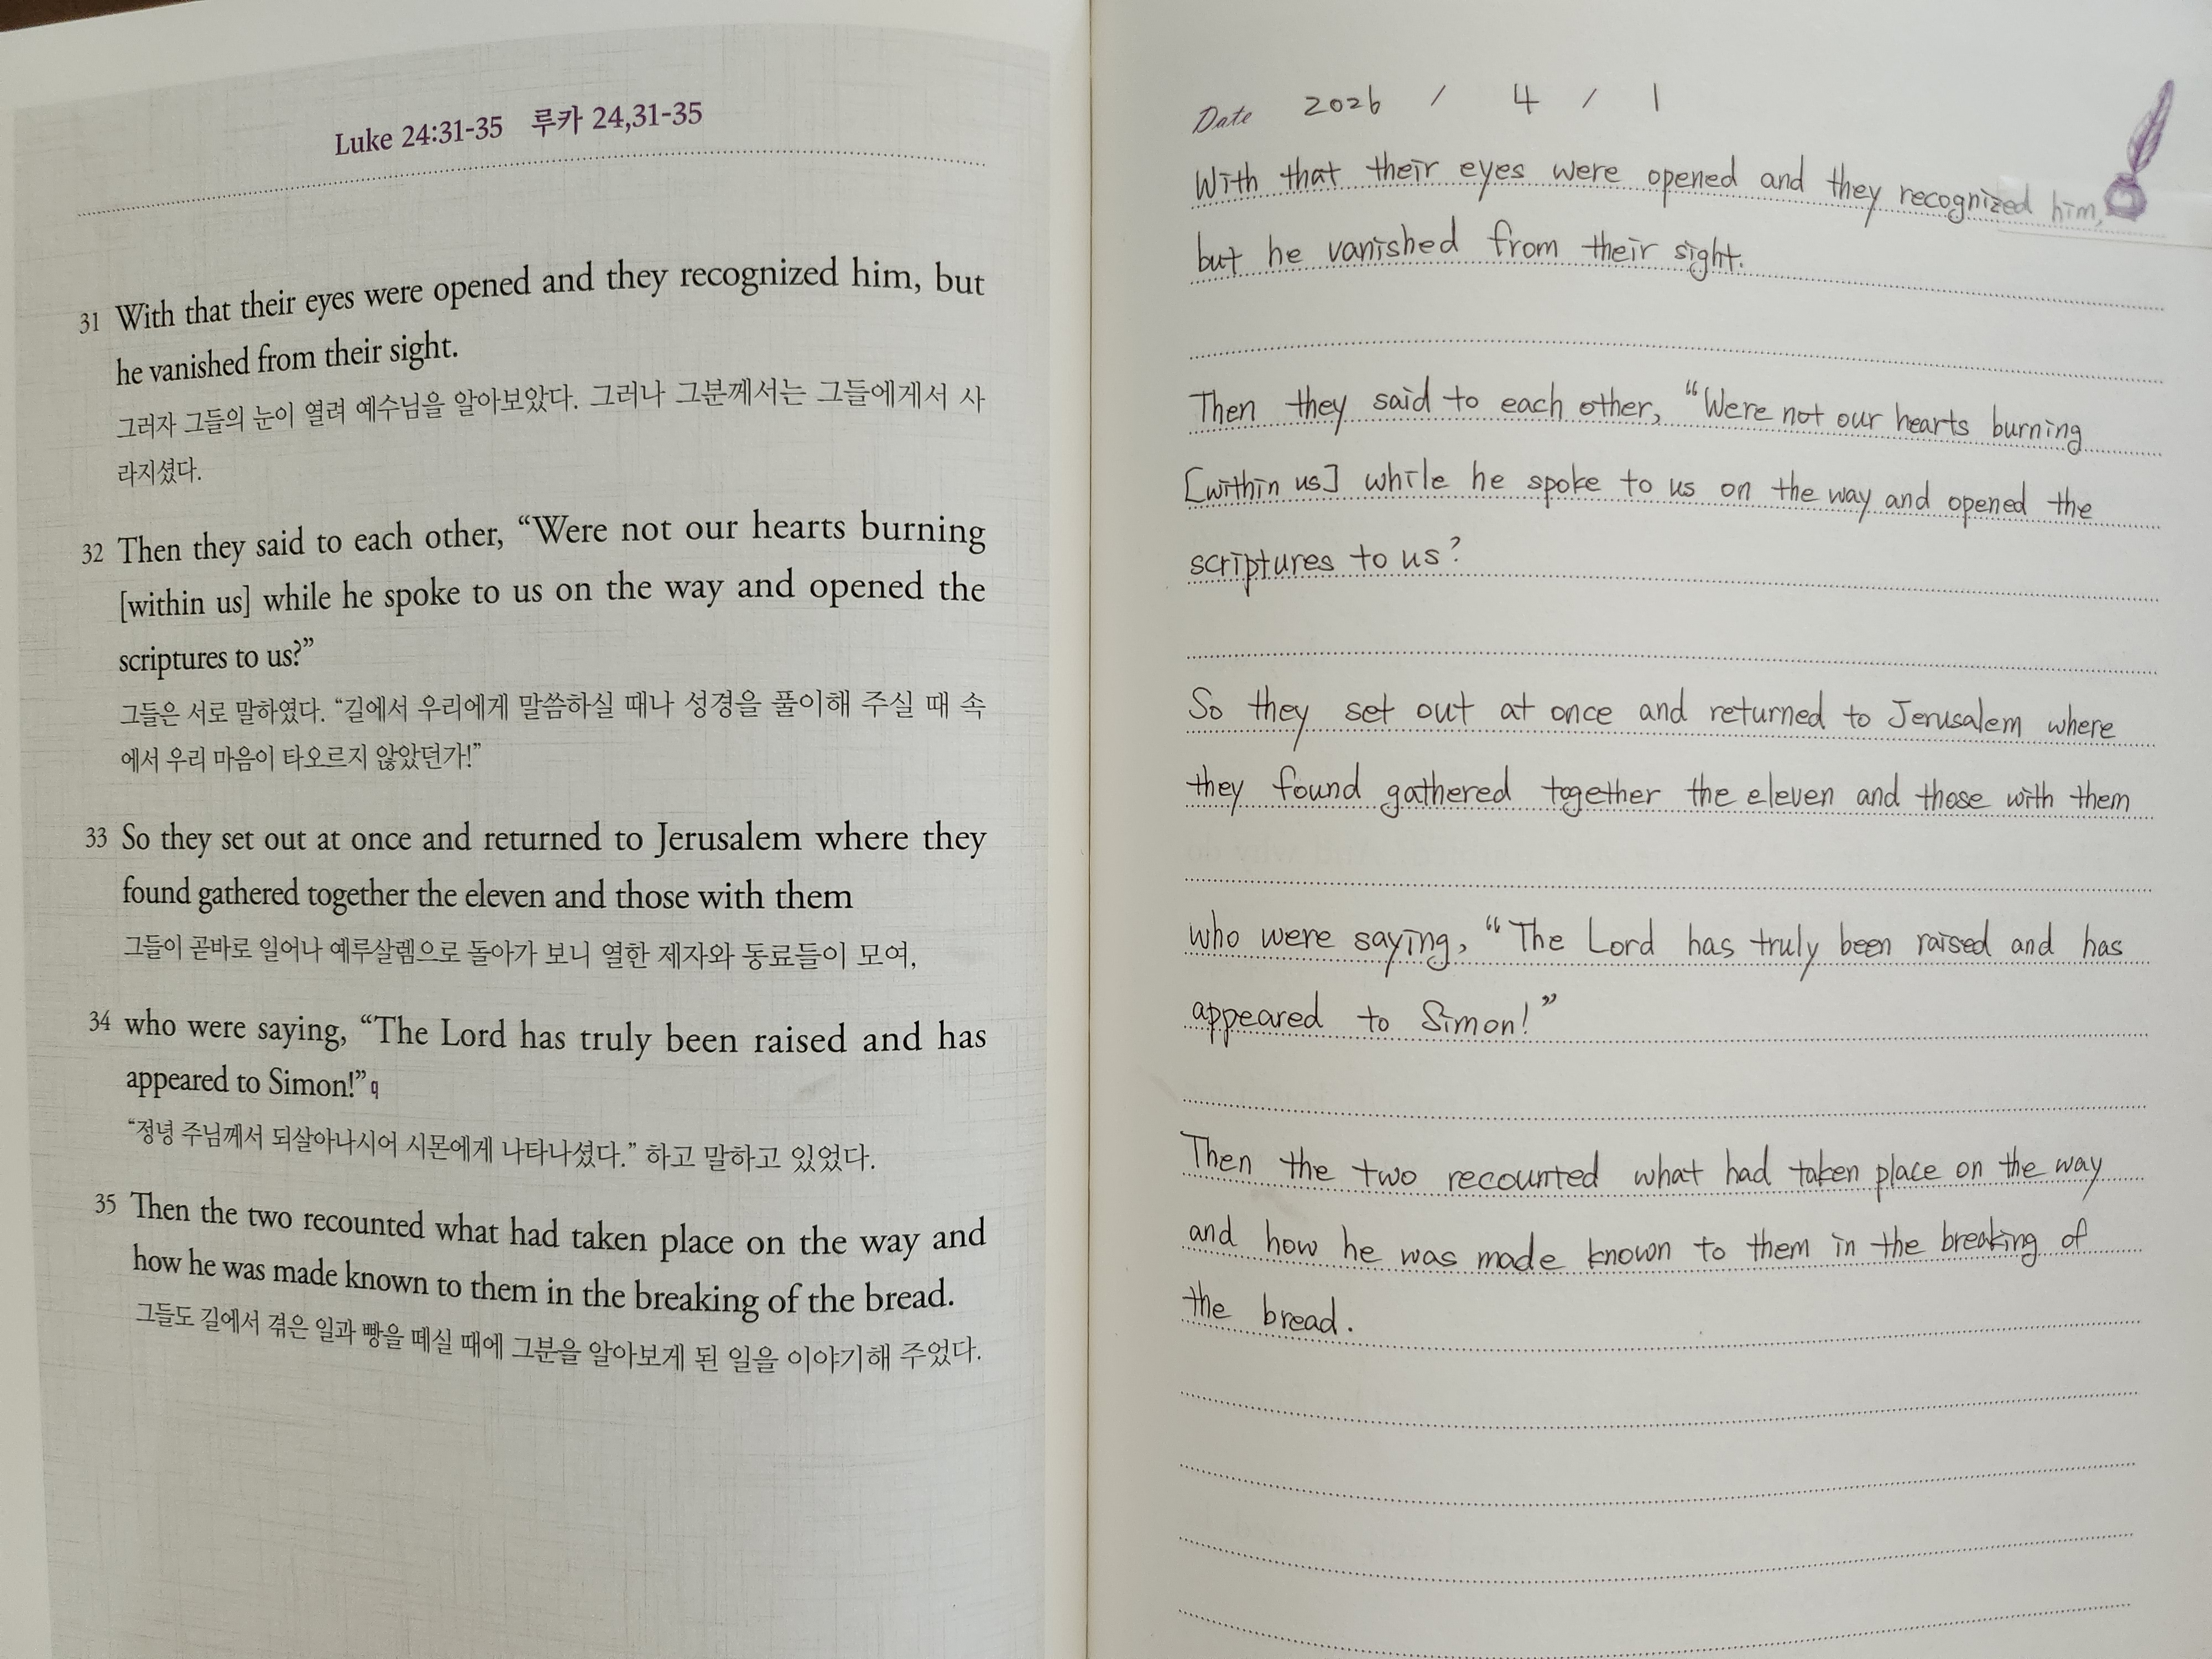 Luke 24:31-35 루카 24,31-35
31 With that their eyes were opened and they recognized him, but
he vanished from their sight.
그러자 그들의 눈이 열려 예수님을 알아보았다. 그러나 그분께서는 그들에게서 사
라지셨다.
32 Then they said to each other, “Were not our hearts burning
[within us] while he spoke to us on the way and opened the
scriptures to us?”
그들은 서로 말하였다. “길에서 우리에게 말씀하실 때나 성경을 풀이해 주실 때 속
에서 우리 마음이 타오르지 않았던가!”
33 So they set out at once and returned to Jerusalem where they
found gathered together the eleven and those with them
그들이 곧바로 일어나 예루살렘으로 돌아가 보니 열한 제자와 동료들이 모여,
34 who were saying, “The Lord has truly been raised and has
appeared to Simon!”q
“정녕 주님께서 되살아나시어 시몬에게 나타나셨다.” 하고 말하고 있었다.
35 Then the two recounted what had taken place on the way and
how he was made known to them in the breaking of the bread.
그들도 길에서 겪은 일과 빵을 떼실 때에 그분을 알아보게 된 일을 이야기해 주었다.
Date 2026 / 4 / 1
With that their eyes were opened and they recognized him,
but he vanished from their sight.
Then they said to each other, “Were not our hearts burning
[within us] while he spoke to us on the way and opened the
scriptures to us?
So they set out at once and returned to Jerusalem where
they found gathered together the eleven and those with them
who were saying, “The Lord has truly been raised and has
appeared to Simon!”
Then the two recounted what had taken place on the way
and how he was made known to them in the breaking of
the bread.